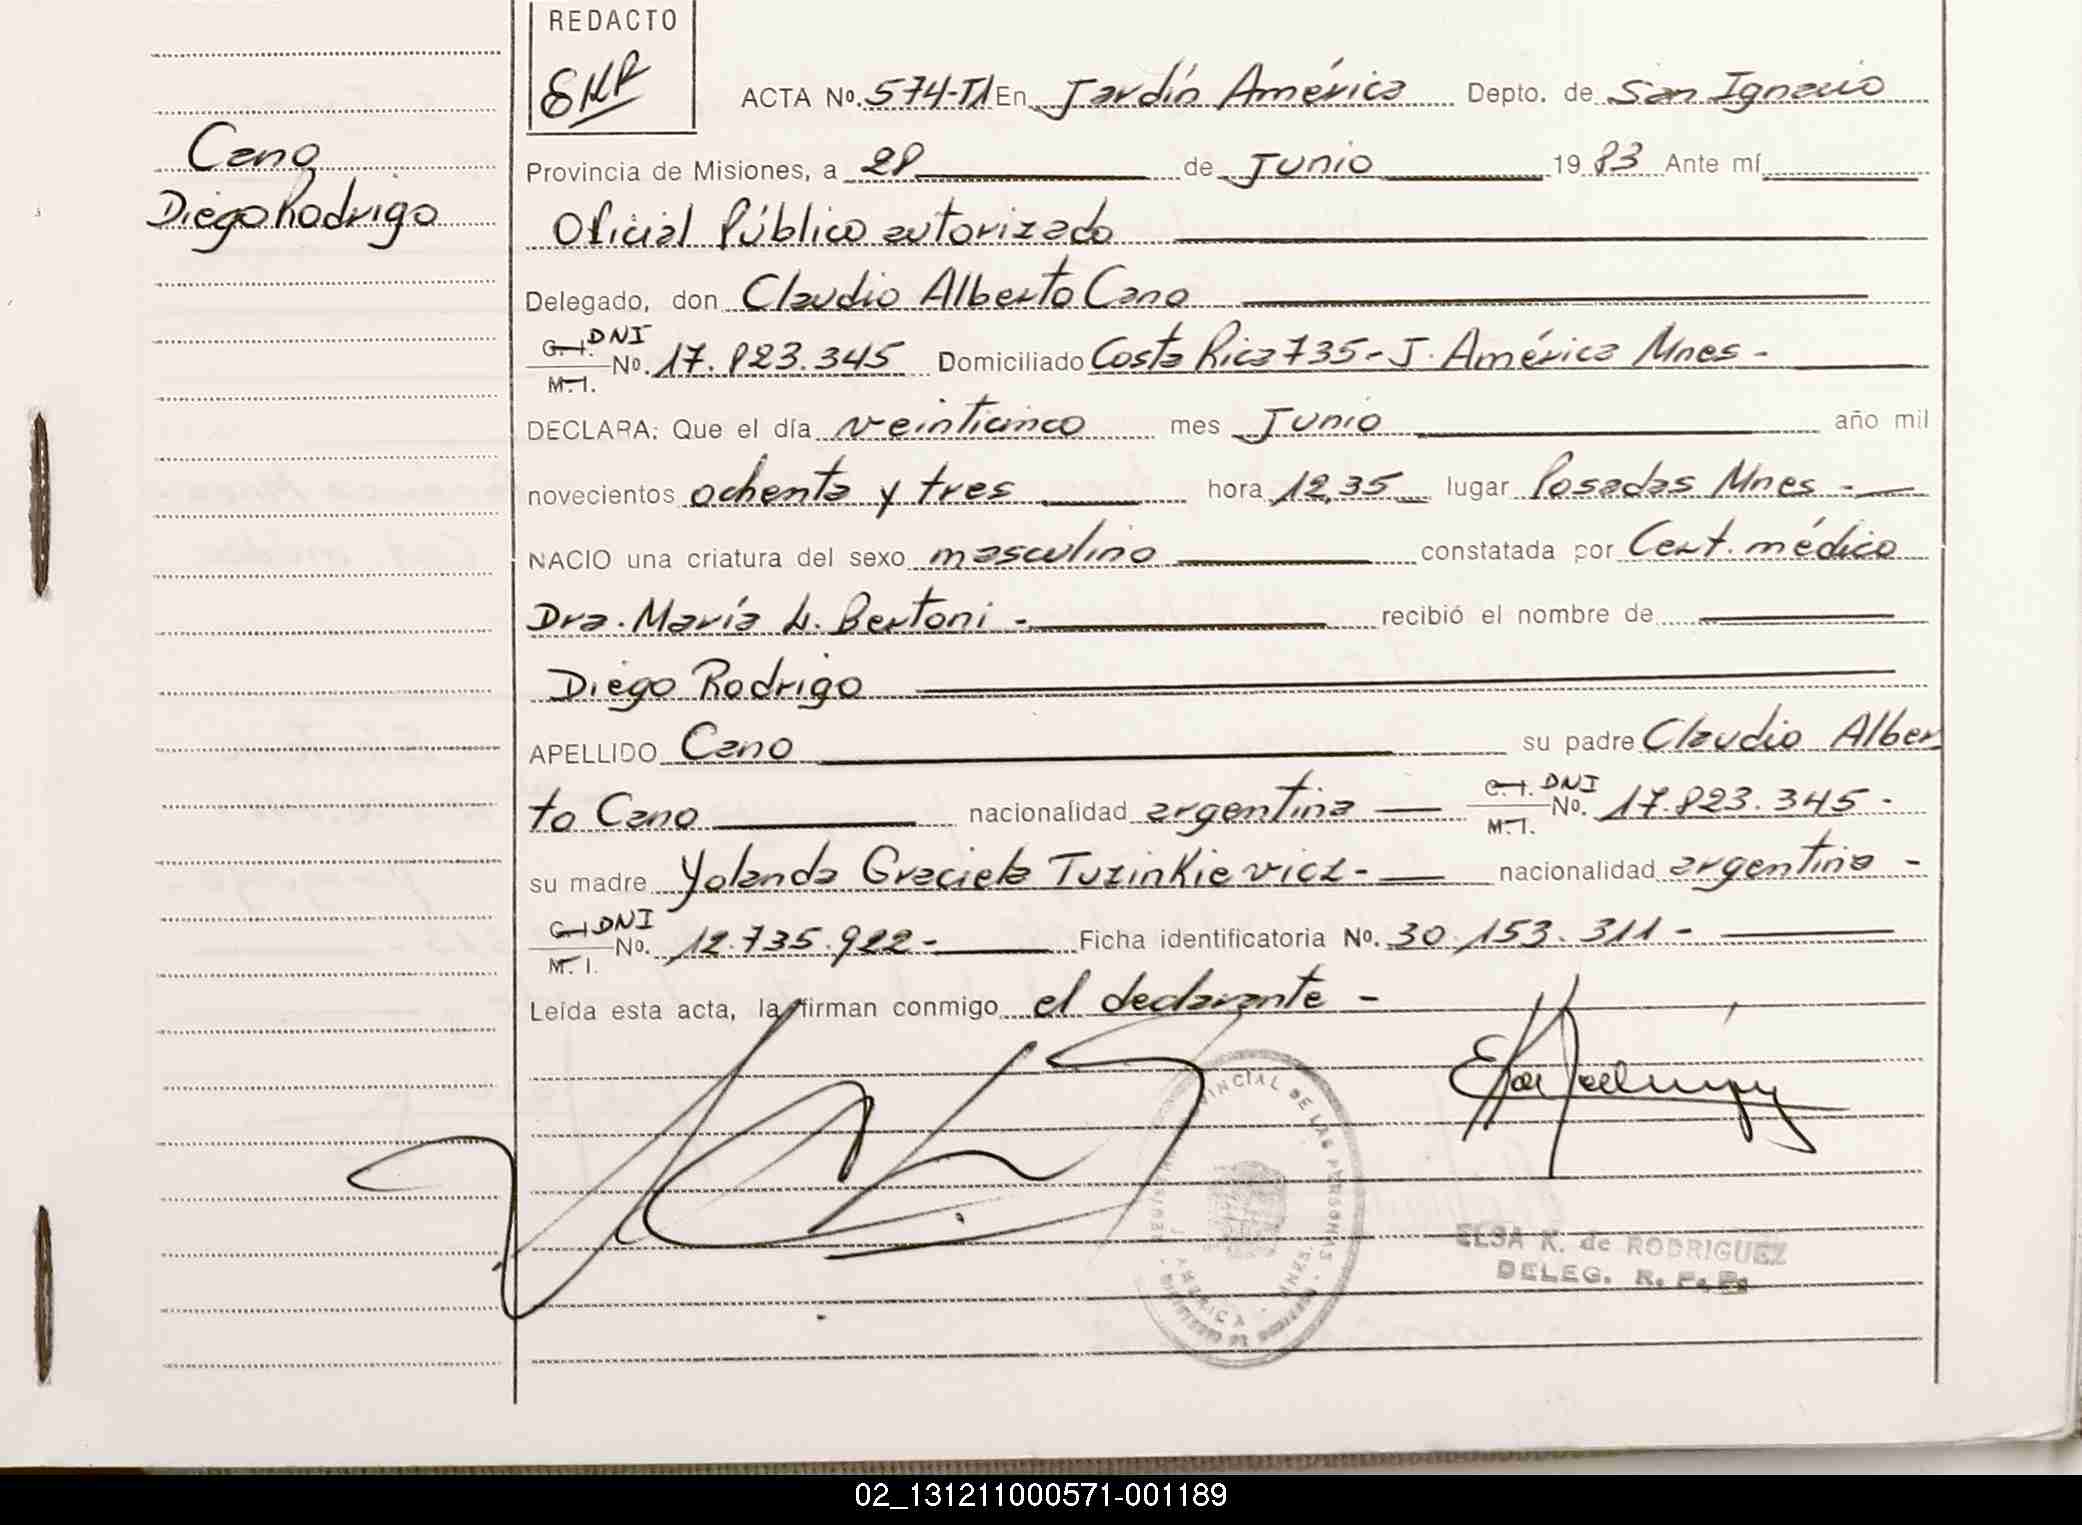 REDACTO
ACTA No. 574-TI En Jardín América Depto. de San Ignacio
Cano
Diego Rodrigo
Provincia de Misiones, a 28 de Junio 1983 Ante mí
Oficial Público autorizado
Delegado, don Claudio Alberto Cano
C.I. DNI
M.I. No. 17.823.345 Domiciliado Costa Rica 735- J. América Mnes -
DECLARA: Que el día veinticinco mes Junio año mil
novecientos ochenta y tres hora 12,35 lugar Posadas Mnes -
NACIO una criatura del sexo masculino constatada por Cert. médico
Dra. María L. Bertoni - recibió el nombre de
Diego Rodrigo
APELLIDO Cano su padre Claudio Alber
to Cano nacionalidad argentina C.I. DNI M.I. No. 17.823.345 -
su madre Yolanda Graciela Tuzinkievicz - nacionalidad argentina -
C.I. DNI
M.I. No. 12.735.922 - Ficha identificatoria No. 30.153.311 -
Leída esta acta, la firman conmigo el declarante -
PROVINCIAL DE LAS PERSONAS
AMERICA
ELSA K. de RODRIGUEZ
DELEG. R. P. Ps.
02_131211000571-001189